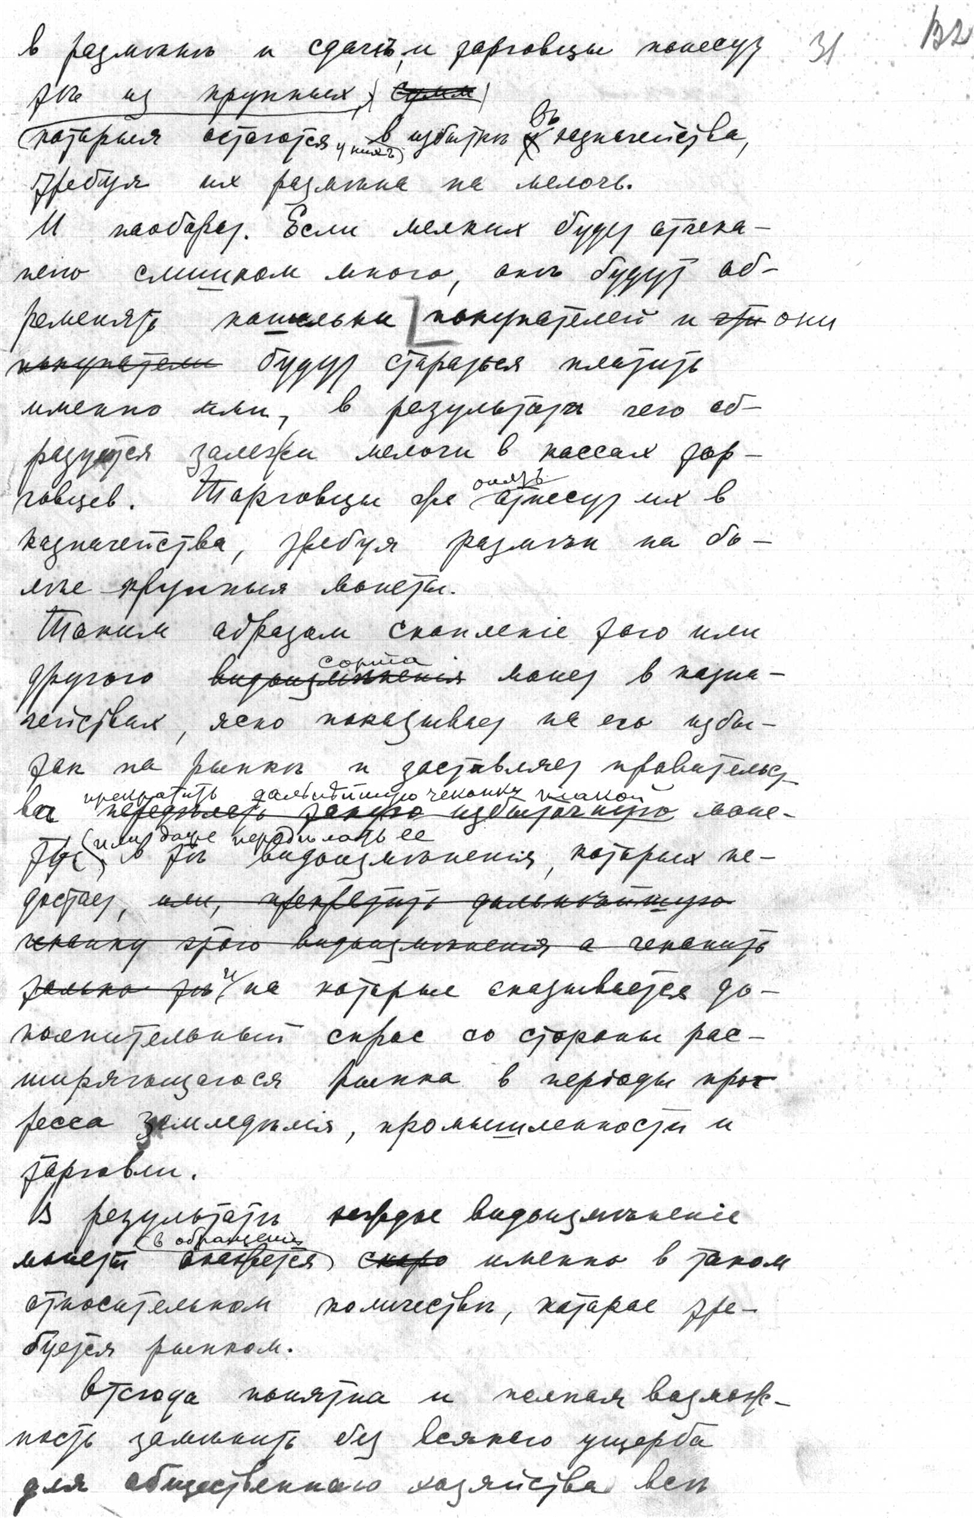 в размѣнѣ и сдачѣ, и торговцы понесут 31 132
тѣ из крупных, (сумм)
которыя остаются у них в избыткѣ въ казначейства,
требуя их размѣна на мелочь.
И наоборот. Если мелких будет отчека-
нено слишком много, онѣ будут об-
ременять кошельки покупателей и эти они
покупатели будут стараться платить
именно ими, в результатѣ чего об-
разуются залежи мелочи в кассах тор-
говцев. Торговцы же опять отнесут их в
казначейства, требуя размѣна на бо-
лѣе крупныя монеты.
Таким образом скопленіе того или
другого видоизмѣненія сорта монет в казна-
чействах, ясно показывает на его избы-
ток на рынкѣ и заставляет правительст-
во прекратить дальнѣйшую чеканку такой
передѣлать такую избыточную моне-
ты (или даже передѣлать ее
в тѣ видоизмѣненія, которых не-
достает, или, прекратить дальнѣйшую
чеканку этого видоизмѣненія а чеканить
только тѣ и на которые сказывается до-
полнительный спрос со стороны рас-
ширяющагося рынка в періоды прог-
ресса земледѣлія, промышленности и
торговли.
В результатѣ каждое видоизмѣненіе
монеты в обращении окажется скоро именно в таком
относительном количествѣ, которое тре-
буется рынком.
Отсюда понятна и полная возмож-
ность замѣнить без всякаго ущерба
для общественнаго хозяйства всѣ